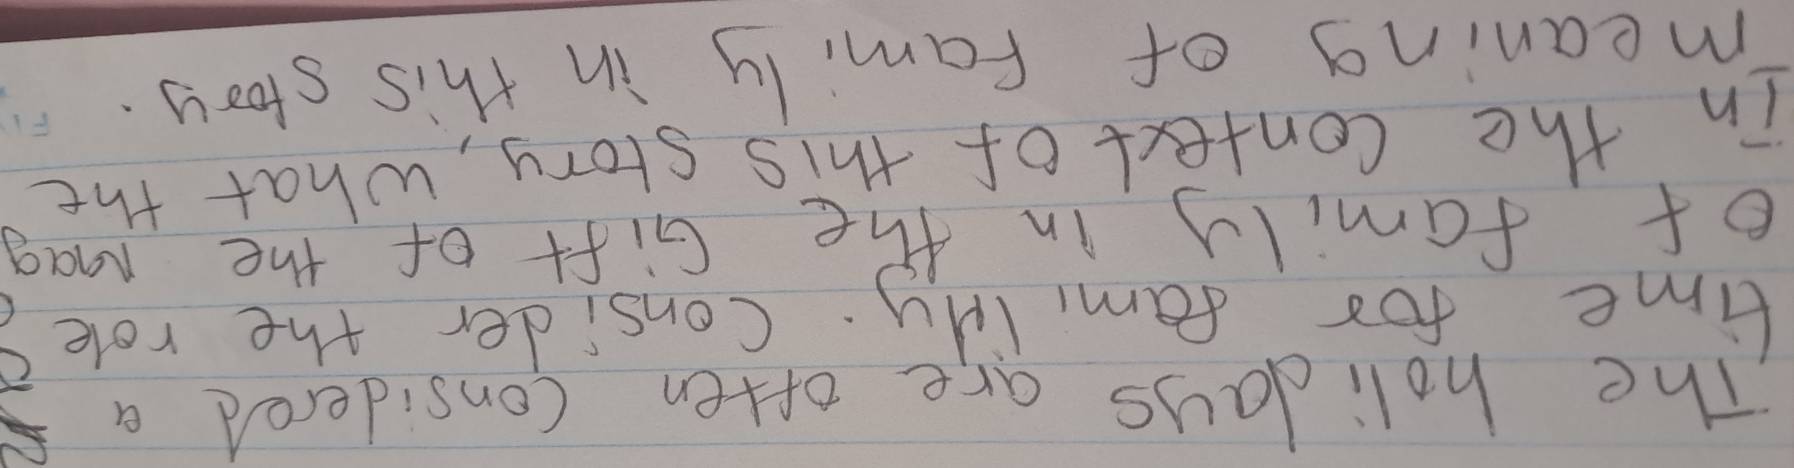 The holidays are often considered a
time for family. Consider the role
of family in the Gift of the Mag
In the context of this story, what the
meaning of family in this story.